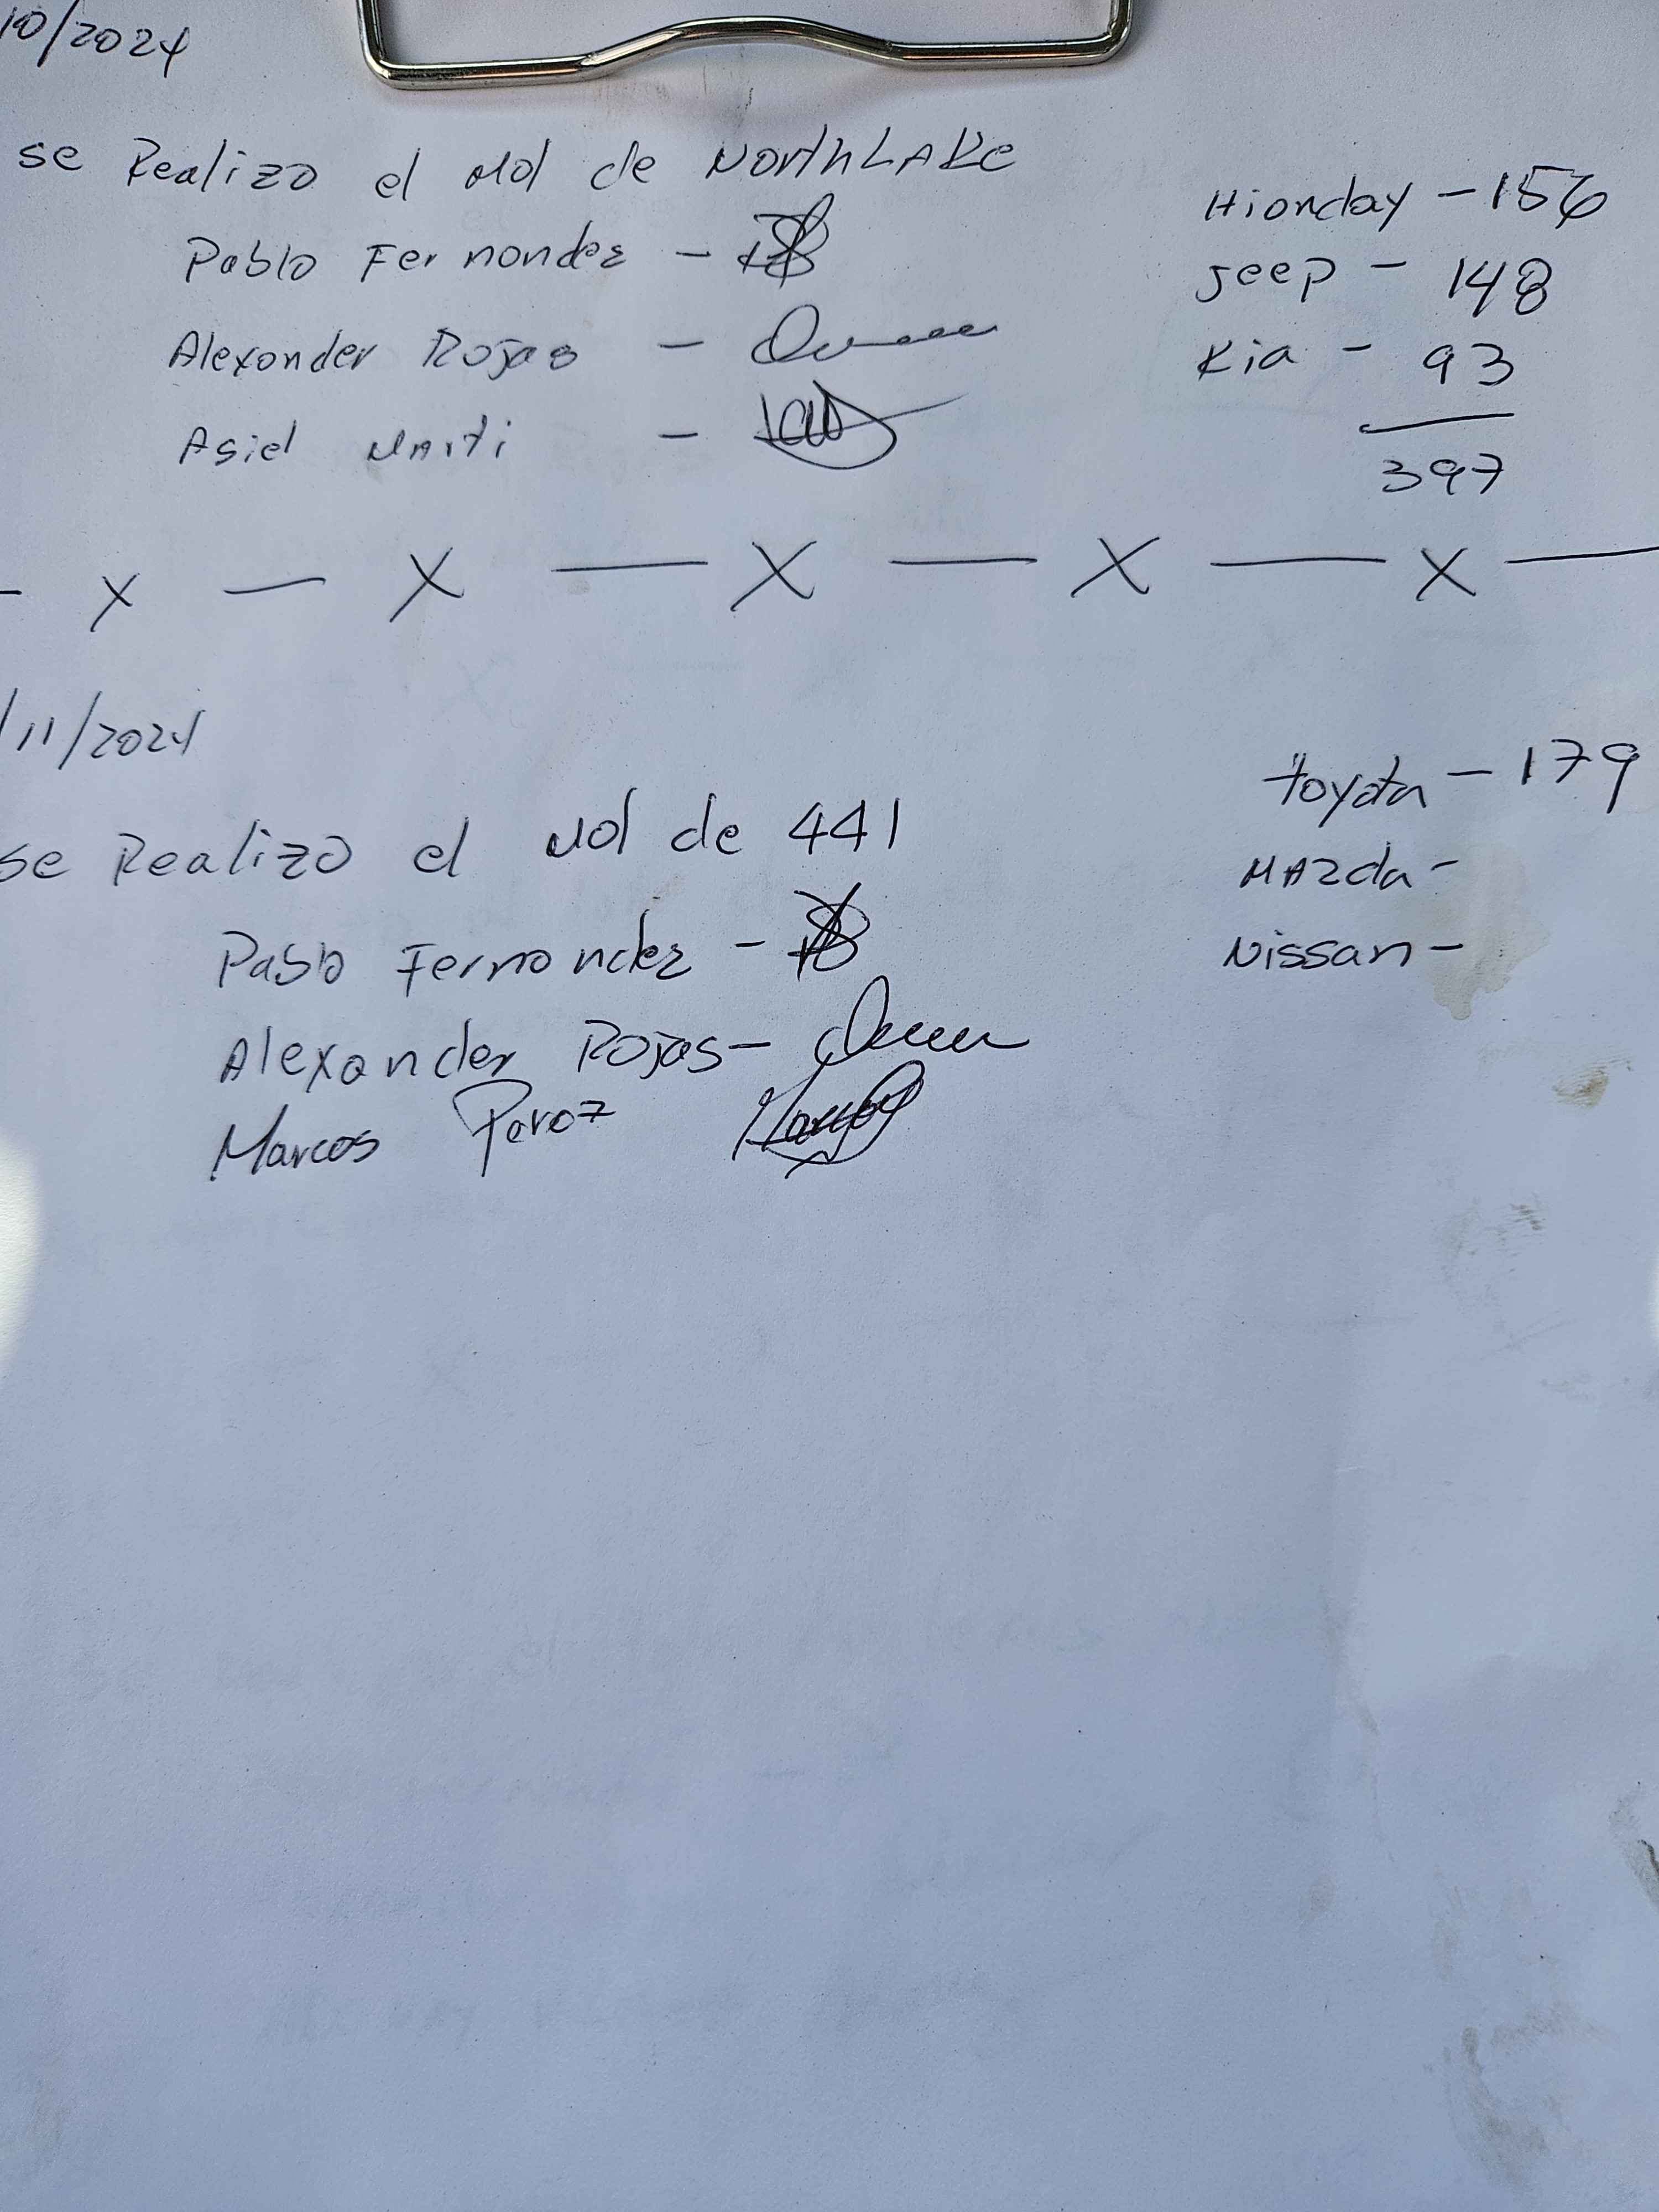 10/2024
se Realizo el Mol de NorthLAKe
Pablo Fernondez -
Alexonder Rojas -
Asiel MArti -
Hionday - 156
Jeep - 148
Kia - 93
397
- X - X - X - X - X -
/11/2024
se Realizo el Mol de 441
Pablo Fernondez -
Alexander Rojas -
Marcos Perez
toyota - 179
MAzda -
Nissan -